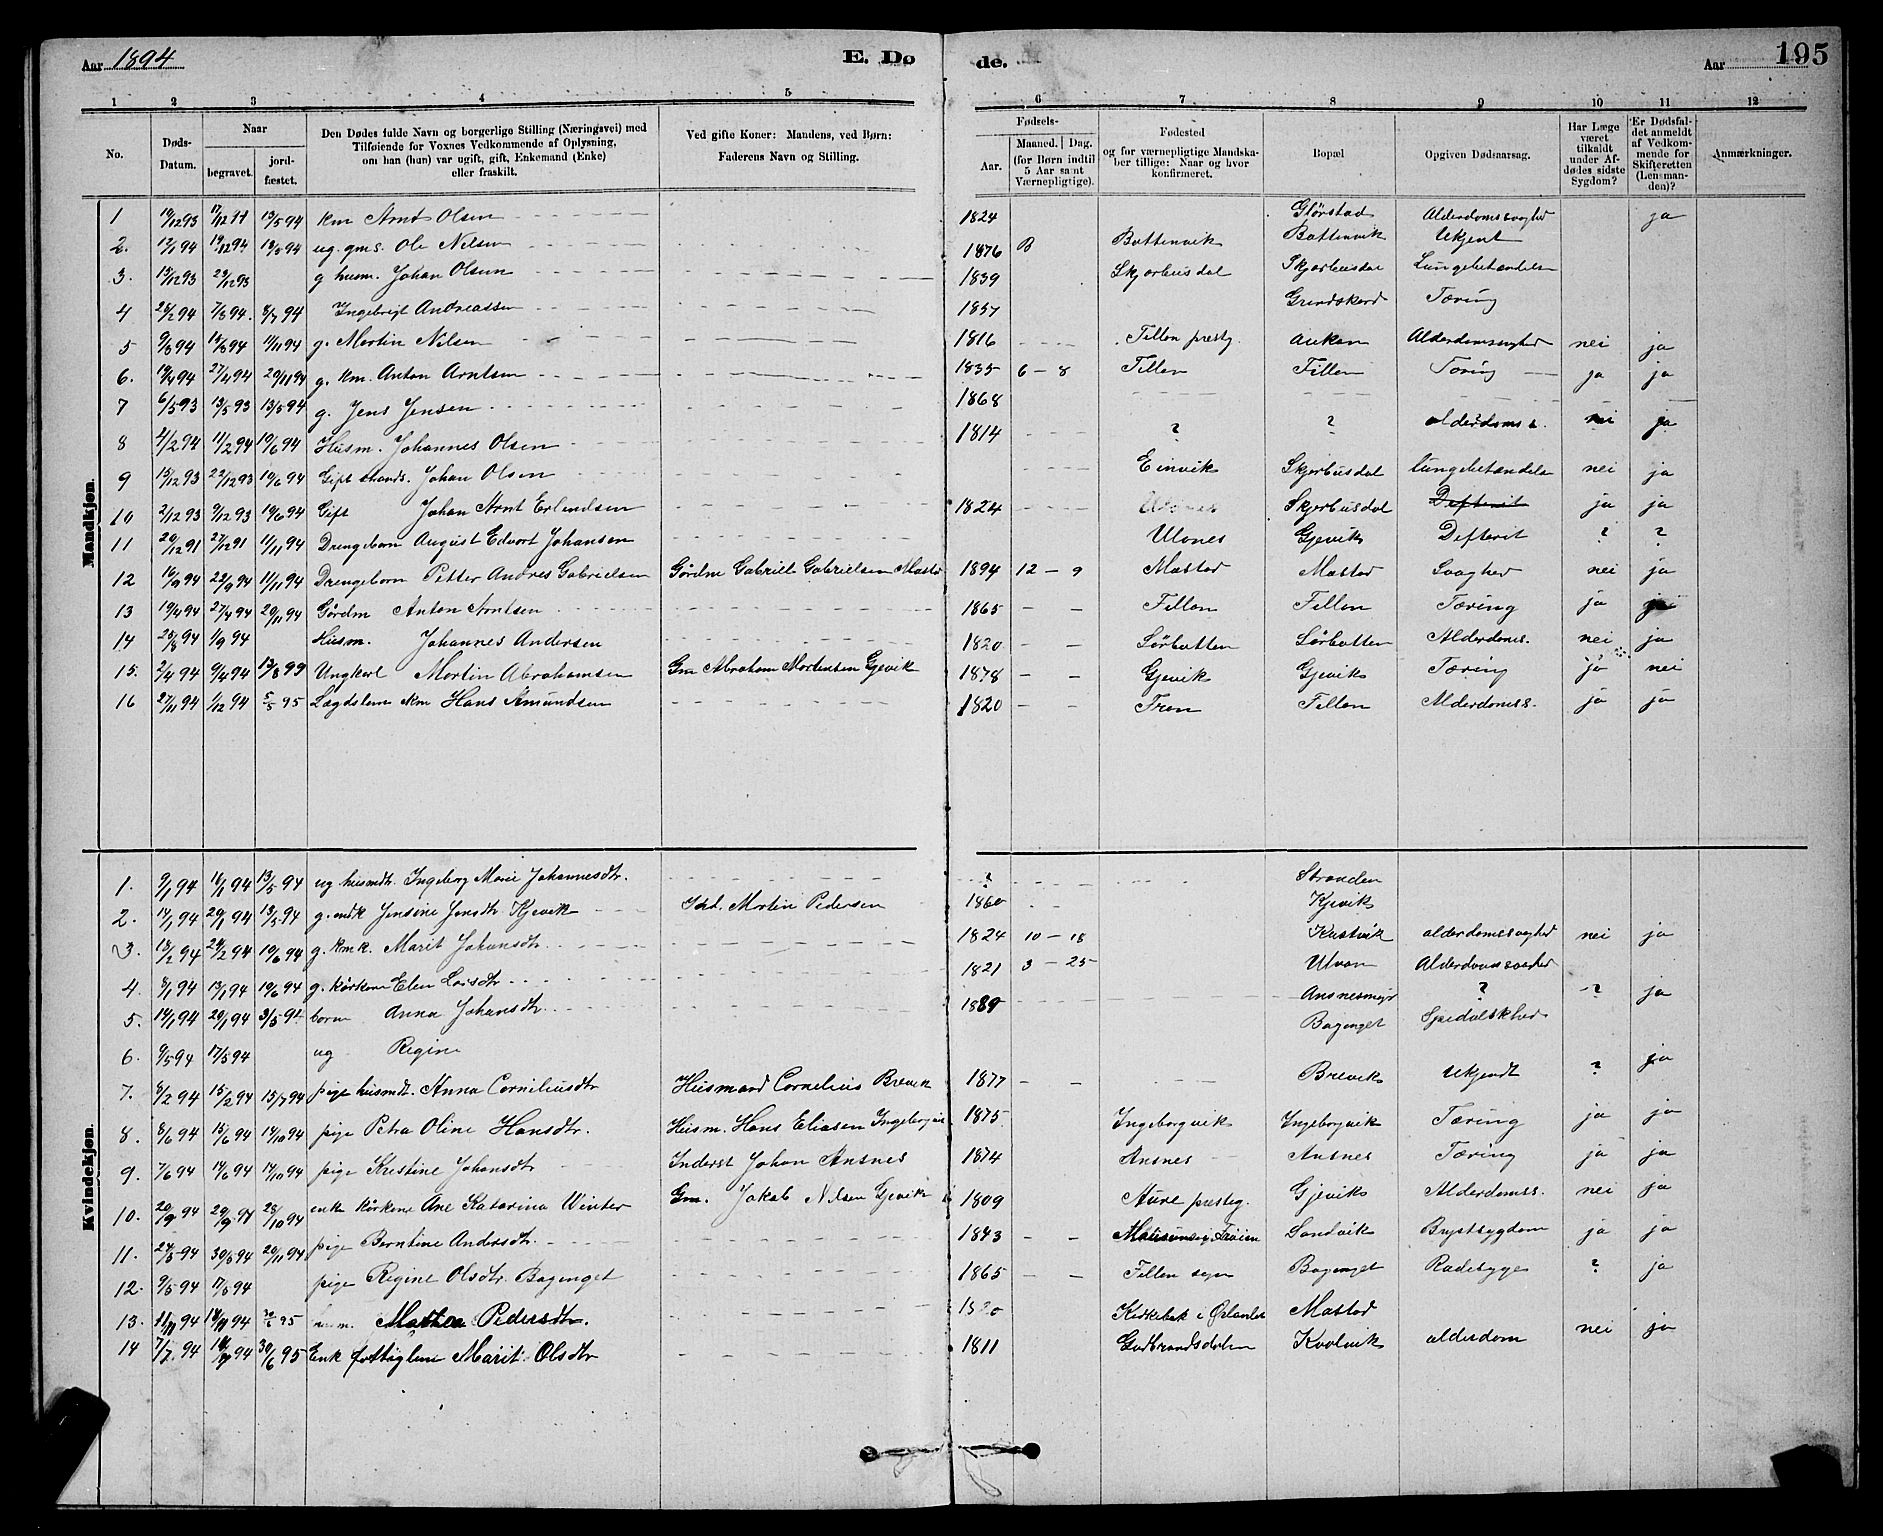 Aar 1894 E. Dø de. Aar 195
1 2 3 4 5 6 7 8 9 10 11 12
No. Døds-Datum. Naar begravet. jord-fæstet. Den Dødes fulde Navn og borgerlige Stilling (Næringsvei) med Tilføiende for Voxnes Vedkommende af Oplysning, om han (hun) var ugift, gift, Enkemand (Enke) eller fraskilt. Ved gifte Koner: Mandens, ved Børn: Faderens Navn og Stilling. Fødsels- Aar. Maaned. Dag. (for Børn indtil 5 Aar samt Værnepligtige). Fødested og for værnepligtige Mandskaber tillige: Naar og hvor konfirmeret. Bopæl. Opgiven Dødsaarsag. Har Læge været tilkaldt under Afdødes sidste Sygdom? Er Dødsfaldet anmeldt af Vedkommende for Skifteretten (Lensmanden)? Anmærkninger.
Mandkjøn.
1 19/12 93 13/5 94 km Arnt Olsen 1824 Glørstad Alderdomssvaghed ja
2. 12/1 94 19/12 94 13/5 94 ug. gms. Ole Nilsen 1876 B Bottenvik Bottenvik Ukjent
3. 15/12 93 23/12 93 g husm. Johan Olsen 1839 Skjærbusdal Skjærbusdal Lungebetændelse
4 28/2 94 7/3 94. 8/7 94 Ingebrigt Andreassen 1857 Grindskard Tæring
5 9/3 94 15/3 94 11/11 94 g. Martin Nilsen 1816 Fillan prestg. Auken Alderdomssvaghed nei ja
6. 19/4 94 27/4 94 20/11 94 g. km. Anton Arntsen 1835 6 - 8 Fillan Fillan Tæring ja ja
7 6/5 93 13/5 93 13/5 94 g. Jens Jensen 1868
8 4/2 94 11/2 94 10/6 94 Husm. Johannes Olsen 1814 ? ? alderdoms s. nei ja
9 15/12 93 23/12 93 10/6 94 Gift Johan Olsen Einvik Skjerbusdal lungebetændelse nei ja
10 2/12 93 9/12 93 19/6 94 Gift Johan Arnt Erlandsen 1824 Ulvnes Skjerbusdal Defterit ja ja
11 20/12 91 27/12 91 11/11 94 Drengebarn August Edvart Johansen Ulvnes Gjevik Defterit ? ?
12 16/9 94 23/9 94 11/11 94 Drengebarn Petter Andres Gabrielsen Gårdm Gabriel Gabrielsen Mastad 1894 12 - 9 Mastad Mastad Svaghed nei ja
13 19/4 94 27/4 94 20/11 94 Gårdm Anton Arntsen 1865 - - Fillan Fillan Tæring ja
14 25/8 94 1/9 94 Husm. Johannes Andersen 1820 - - Sørbotten Sørbotten Alderdoms. nei ja
15. 2/4 94 9/4 94 13/8 99 Ungkarl Martin Abrahamsen Gm Abraham Mortensen Gjevik 1878 - - Gjevik Gjevik Tæring ja nei
16 27/11 94 1/12 94 5/5 95 Lægdslem ekm Hans Amundsen 1820 - - Fron Fillan Alderdomss. ja ja
Kvindekjøn.
1. 9/1 94 16/1 94 13/5 94 ug husmdtr. Ingeborg Marie Johannesdtr. ? Stranden
2. 14/1 94 20/1 94 13/5 94 g. mdk Jensine Jensdtr Kjevik Martin Pedersen 1860 Kjevik
3. 18/2 94 24/2 94 10/6 94 g. kmk. Marit Johansdtr. 1824 10 - 18 Kastvik alderdomssvaghed nei ja
4. 8/1 94 13/1 94 10/6 94 g. kårkone Elen Larsdtr 1821 3 - 25 Ulvan Alderdomssvaghed
5. 14/1 94 20/1 94 3/5 94 barn Anna Johansdtr. 1889 Ansnesmyr ? ? ja
6. 9/5 94 17/5 94 ug Regine Boganget Spedalskhed
7. 8/2 94 15/2 94 15/7 94 pige husmdt. Anna Corneliusdtr Husmand Cornelius Brevik 1877 - - Brevik Ukjendt ? ja
8. 8/6 94 15/6 94 14/10 94 pige Petra Oline Hansdtr. Husm. Hans Eliasen Ingeborgvik 1875 Ingeborgvik Ingeborgvik Tæring ja ja
9. 7/6 94 14/6 94 14/10 94 pige Kristine Johansdtr Inderst Johan Ansnes 1874 Ansnes Ansnes Tæring ja ja
10. 20/9 94 29/9 94 28/10 94 enke kårkone Ane Katarina Winter Gm. Jakob Nilsen Gjevik 1809 Aure prestg. Gjevik Alderdomss. nei ja
11. 24/5 94 30/5 94 20/11 94 pige Berntine Andersdtr. 1843 - - Frøien Sandvik Brystsygdom ja ja
12. 9/5 94 17/5 94 pige Regine Olsdtr. Boganget 1865 - - Fillan sogn Boganget Radesyge ? ja
13. 11/11 94 18/11 94 95 Mathea Pedersdtr. i Ørlandet Mastad
14 7/7 94 94 30/6 95 Enk fattiglem Marit Olsdtr 1811 Gudbrandsdalen Kvalvik alderdom nei ja